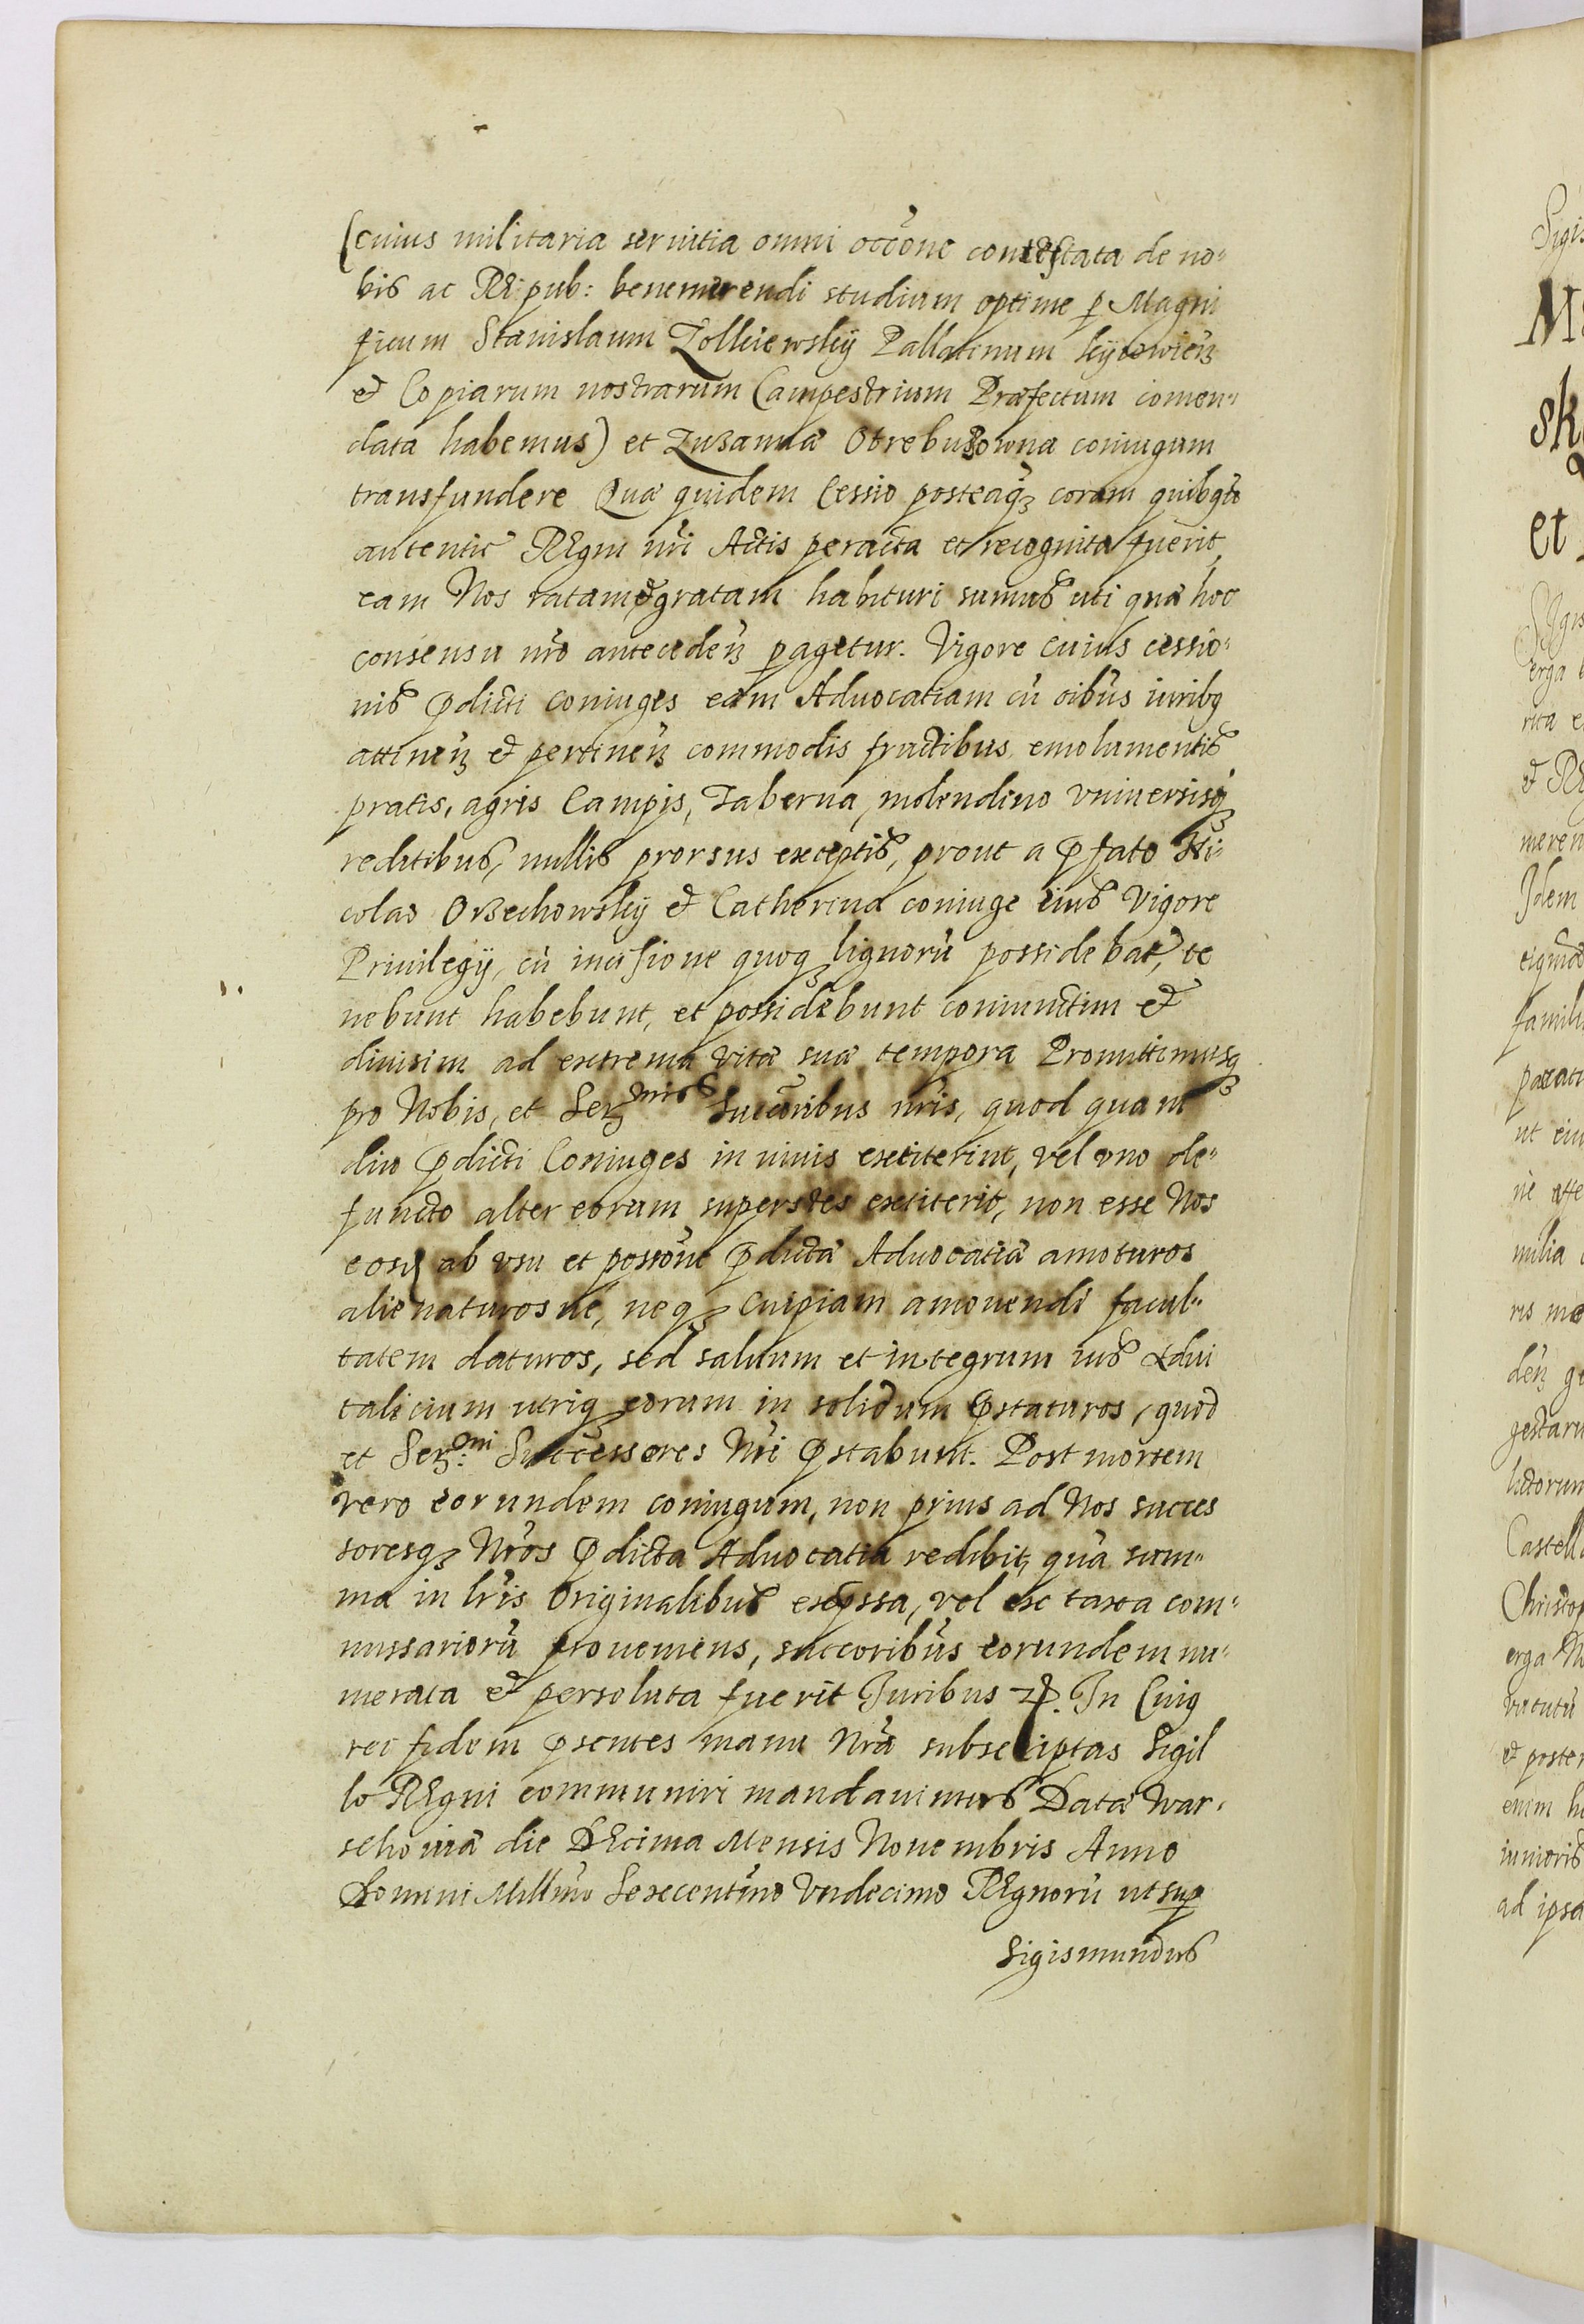 (cuius militaria seruitia omni occone contestata de no-
bis ac Reipub: benemerendi studium optime p Magni
ficum Stanislaum Zolkiewsky Pallatinum kyiowien
et Copiarum nostrarum Campestrium Præfectum comen-
data habemus) et Zuzannæ Otrebuzowna coniugum
transfundere Quæ quidem Cessio posteaq coram quibq
autentic Regni nri Actis peracta et recognita fuerit,
eam Nos ratam et gratam habituri sumus uti quæ hoc
consensu nro anteceden pagetur. Vigore cuius cessio-
nis pdicti coniuges eam Aduocatiam cu oibus iuribq
attinen et pertinen commodis fructibus, emolumentis
pratis, agris Campis, Taberna, molendino vniuersisq
reditibus, nullis prorsus exceptis, prout a pfato Ni-
colao Orzechowsky et Catherina coniuge eius vigore
Priuilegij, cu incisione quoq lignoru possidebat, te
nebunt habebunt, et possidebunt coniunctim et
diuisim ad extrema vitæ suæ tempora Promittimusq
pro Nobis, et Ser mis Succoribus nris, quod quam
diu pdicti Coniuges in viuis extiterint, vel vno de-
functo alter eorum superstes extiterit, non esse Nos
eosq ab vsu et possone pdictæ Aduocatiæ amoturos
alienaturosue, neq cuipiam amouendi facul-
tatem daturos, sed saluum et integrum ius Adui
talicium utriq eorum in solidum pstaturos, quod
et Ser: mi Successores Nri pstabunt. Post mortem
vero eorundem coniugum, non prius ad Nos succes
soresq Nros pdicta Aduocatia redibit, qua sum-
ma in lris originalibus expssa, vel ex taxa com-
missarioru proueniens, succoribus eorundem nu-
merata et persoluta fuerit Juribus In Cuiq
rei fidem psentes manu Nra subscriptas Sigil
lo Regni communiri mandauimus Datæ War-
schouiæ die Decima Mensis Nouembris Anno
Domini Millimo Sexcentimo Vndecimo Regnoru ut sup
Sigismundus